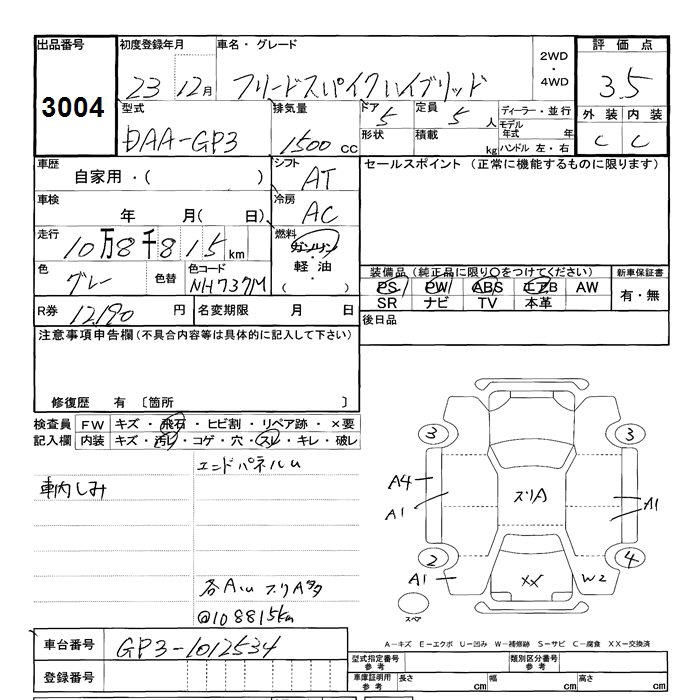 出品番号 初度登録年月 車名・グレード 2WD・4WD 評価点
3004 23 12月 フリードスパイクハイブリッド 3.5
型式 排気量 ドア 定員 ディーラー・並行 外装 内装
DAA-GP3 1500 cc 5 5 人 モデル年式 年 C C
形状 積載 kg ハンドル 左・右
車歴 シフト セールスポイント (正常に機能するものに限ります)
自家用・( ) AT
車検 冷房
年 月( 日) AC
走行 燃料
10万8千815 km ガソリン・軽油・( )
色 色替 色コード 装備品 (純正品に限り○をつけてください) 新車保証書
グレー NH737M PS PW ABS エアB AW 有・無
SR ナビ TV 本革
R券 12,190 円 名変期限 月 日 後日品
注意事項申告欄(不具合内容等は具体的に記入して下さい)
修復歴 有 〔箇所 〕
検査員 FW キズ・飛石・ヒビ割・リペア跡・×要
記入欄 内装 キズ・汚レ・コゲ・穴・スレ・キレ・破レ
エンドパネルU
車内しみ
3 3
A4 スリA
A1 A1
2 4
A1 XX W2
各AU スリAタタ
スペア
@108815km
車台番号 GP3-1012534
A-キズ E-エクボ U-凹み W-補修跡 S-サビ C-腐食 XX-交換済
登録番号 型式指定番号 参考 類別区分番号 参考
車庫証明用 参考 長さ cm 幅 cm 高さ cm